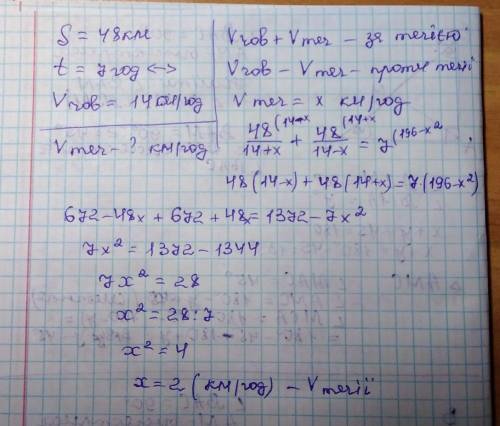 S = 48 км
t = 7 год <->
Vчов = 14 км/год
Vтеч - ? км/год
Vчов + Vтеч - за течією
Vчов - Vтеч - проти течії
Vтеч = x км/год
48(14-x / 14+x + 48(14+x / 14-x = 7(196-x²
48(14-x) + 48(14+x) = 7(196-x²)
672 - 48x + 672 + 48x = 1372 - 7x²
7x² = 1372 - 1344
7x² = 28
x² = 28:7
x² = 4
x = 2 (км/год) - Vтечії